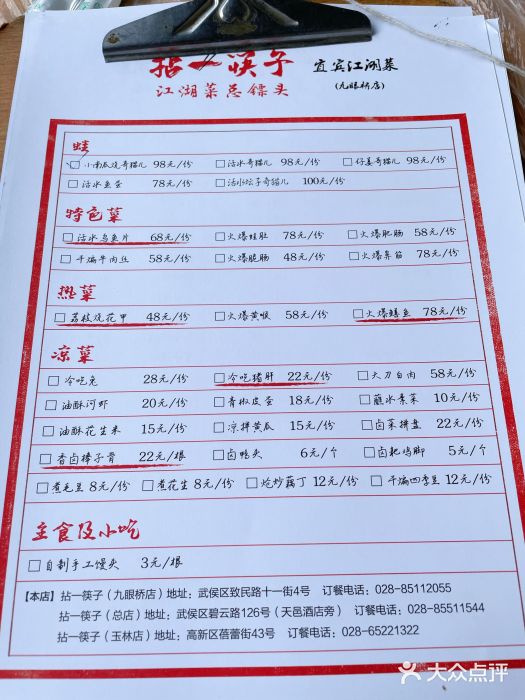 拈一筷子 宜宾江湖菜
江湖菜总镖头 (九眼桥店)
蛙
小南瓜烧奇猫儿 98元/份 活水奇猫儿 98元/份 仔姜奇猫儿 98元/份
活水鱼蛋 78元/份 活水坛子奇猫儿 100元/份
特色菜
活水乌鱼片 68元/份 火爆蛙肚 78元/份 火爆肥肠 58元/份
干煸牛肉丝 58元/份 火爆脆肠 48元/份 火爆鼻筋 78元/份
热菜
荔枝烧花甲 48元/份 火爆黄喉 58元/份 火爆鳝鱼 78元/份
凉菜
冷吃兔 28元/份 冷吃猪肝 22元/份 大刀白肉 58元/份
油酥河虾 20元/份 青椒皮蛋 18元/份 蘸水素菜 10元/份
油酥花生米 15元/份 凉拌黄瓜 15元/份 卤菜拼盘 22元/份
香卤棒子骨 22元/根 卤鸭头 6元/个 卤粑鸡脚 5元/个
煮毛豆 8元/份 煮花生 8元/份 炝炒藕丁 12元/份 干煸四季豆 12元/份
主食及小吃
自制手工馒头 3元/根
【本店】拈一筷子(九眼桥店)地址:武侯区致民路十一街4号 订餐电话:028-85112055
拈一筷子(总店)地址:武侯区碧云路126号(天邑酒店旁) 订餐电话:028-85511544
拈一筷子(玉林店)地址:高新区蓓蕾街43号 订餐电话:028-65221322
大众点评